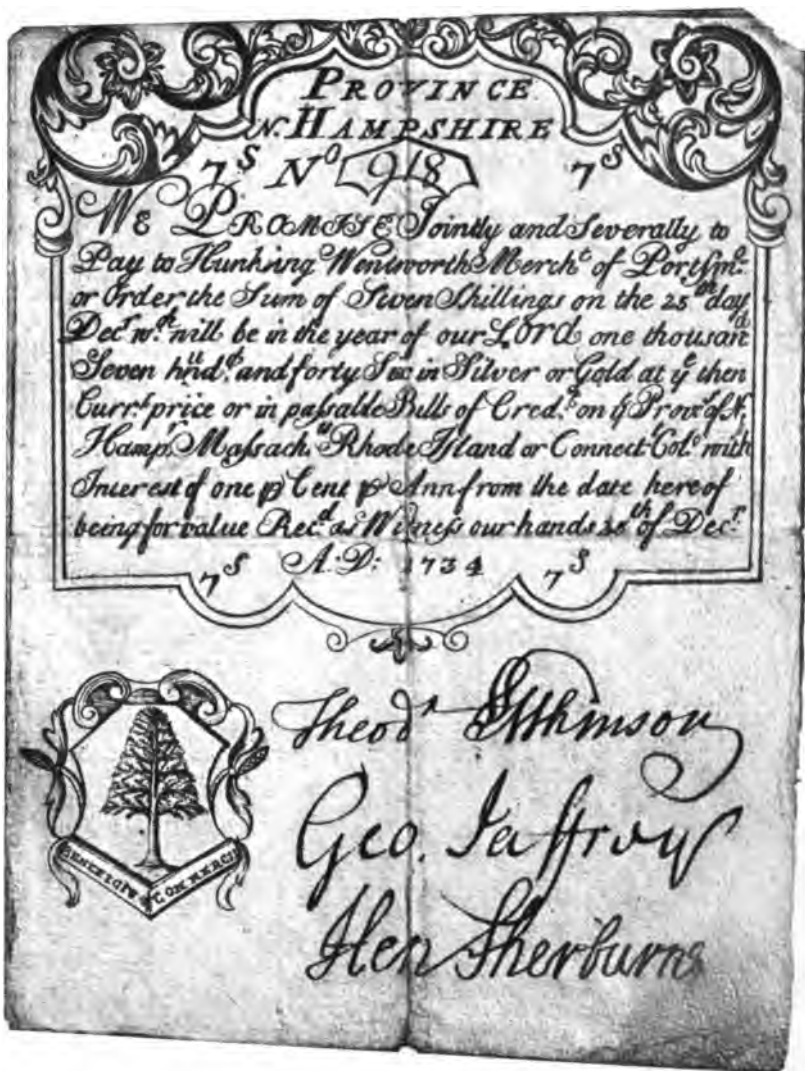 PROVINCE
N. HAMPSHIRE
7S No 918 7S
WE PROMISE Jointly and Severally to
Pay to Hunking Wentworth Mercht of Portsmo
or Order the Sum of Seven Shillings on the 25th day
Decr wch will be in the year of our LORD one thousand
Seven hund. and forty Six in Silver or Gold at ye then
Currt price or in passable Bills of Credt on ye Provce of N.
Hampr Massachts Rhode Island or Connect. Colo with
Interest of one p Cent p Ann from the date hereof
being for value Recd as Witness our hands 25th of Decr
7S A:D: 1734 7S
Theodr Atkinson
Geo. Jaffrey
Hen Sherburne
BENEFICIO COMMERCII